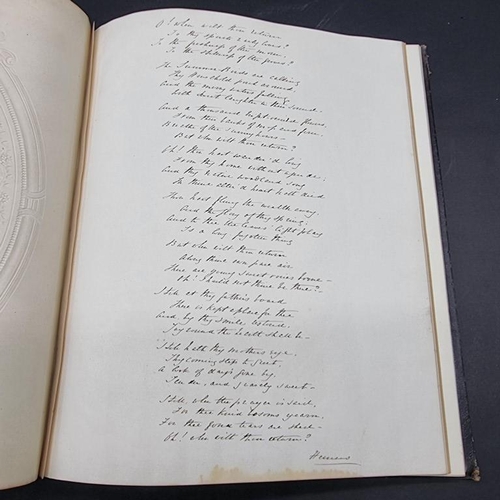 O! when wilt thou return
To thy spirit's early loves?
To the freshness of the morn
To the stillness of the groves?
The Summer Birds are calling
Thy Household porch around,
And the merry waters falling
With sweet laughter in their sound.
And a thousand bright veined flowers,
From their banks of moss and fern
Breathe of the sunny hours—
But when wilt thou return?
Oh! thou hast wander'd long
From thy home without a guide,
And thy native woodland song
In thine alter'd heart hath died
Thou hast flung the wealth away,
And the glory of thy spring,
And to thee the leaves' light play
Is a long forgotten thing
But when wilt thou return
Along thine own pure air
There are young sweet voices borne—
Oh! should not thine be there?—
Still at thy father's board
There is kept a place for thee
And by thy smile restored
Joy round the hearth shall be—
Still hath thy mother's eye,
Thy coming step to greet,
A look of days gone by,
Tender, and gravely sweet—
Still, when the prayer is said,
For thee kind bosoms yearn—
For thee fond tears are shed—
Oh! when wilt thou return?
Hemans